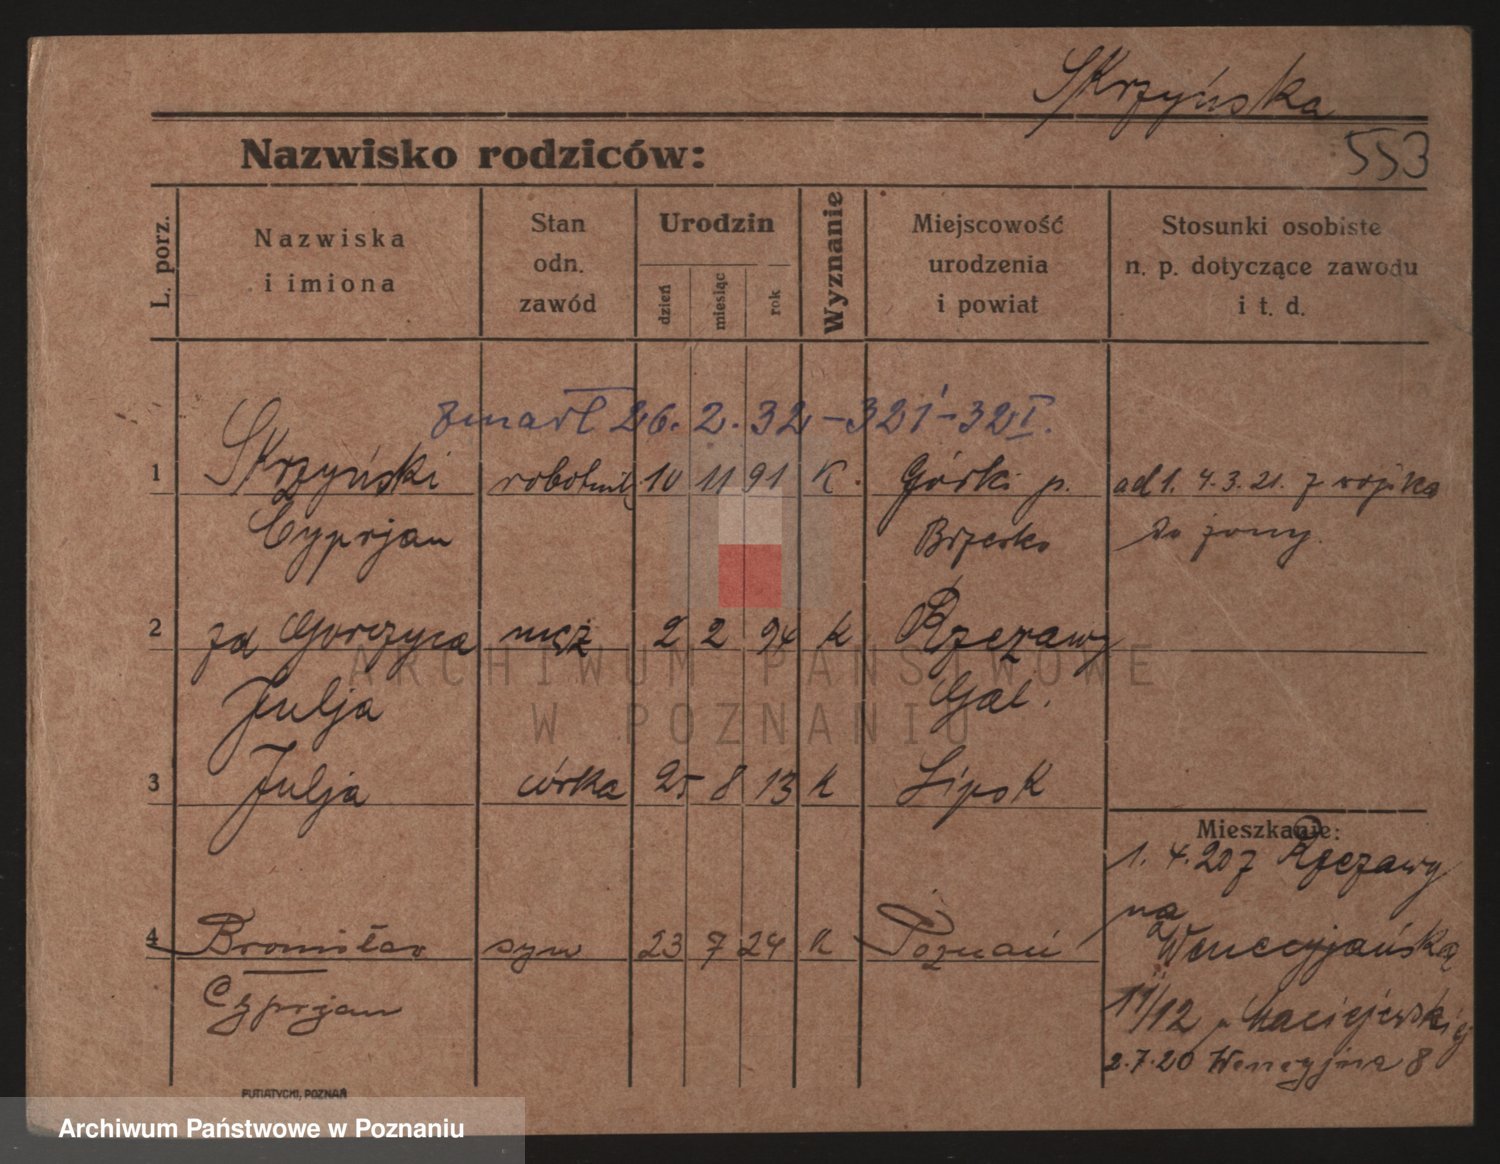 Skrzyńska
553
Nazwisko rodziców:
L. porz.
Nazwiska
i imiona
Stan
odn.
zawód
Urodzin
dzień
miesiąc
rok
Wyznanie
Miejscowość
urodzenia
i powiat
Stosunki osobiste
n. p. dotyczące zawodu
i t. d.
zmarł 26. 2. 32 - 321 - 32 I.
1 Skrzyński robotnik 10 11 91 K. Górki p. od 1. 4. 3. 21. z wojska
Cyprjan Brzesko do żony.
2 zd Gorczyca męż 2 2 94 k Rzezawy
Julja Gal.
3 Julja córka 25 8 13 k Lipsk
Mieszkanie:
1. 4. 20 z Rzezawy
na
Wenecyjańską
11/12 p Maciejewskiej
2. 7. 20 Wenecyjna 8
4 Bronisław syn 23 7 24 k Poznań
Cyprjan
PUTIATYCKI, POZNAŃ
ARCHIWUM PAŃSTWOWE
W POZNANIU
Archiwum Państwowe w Poznaniu